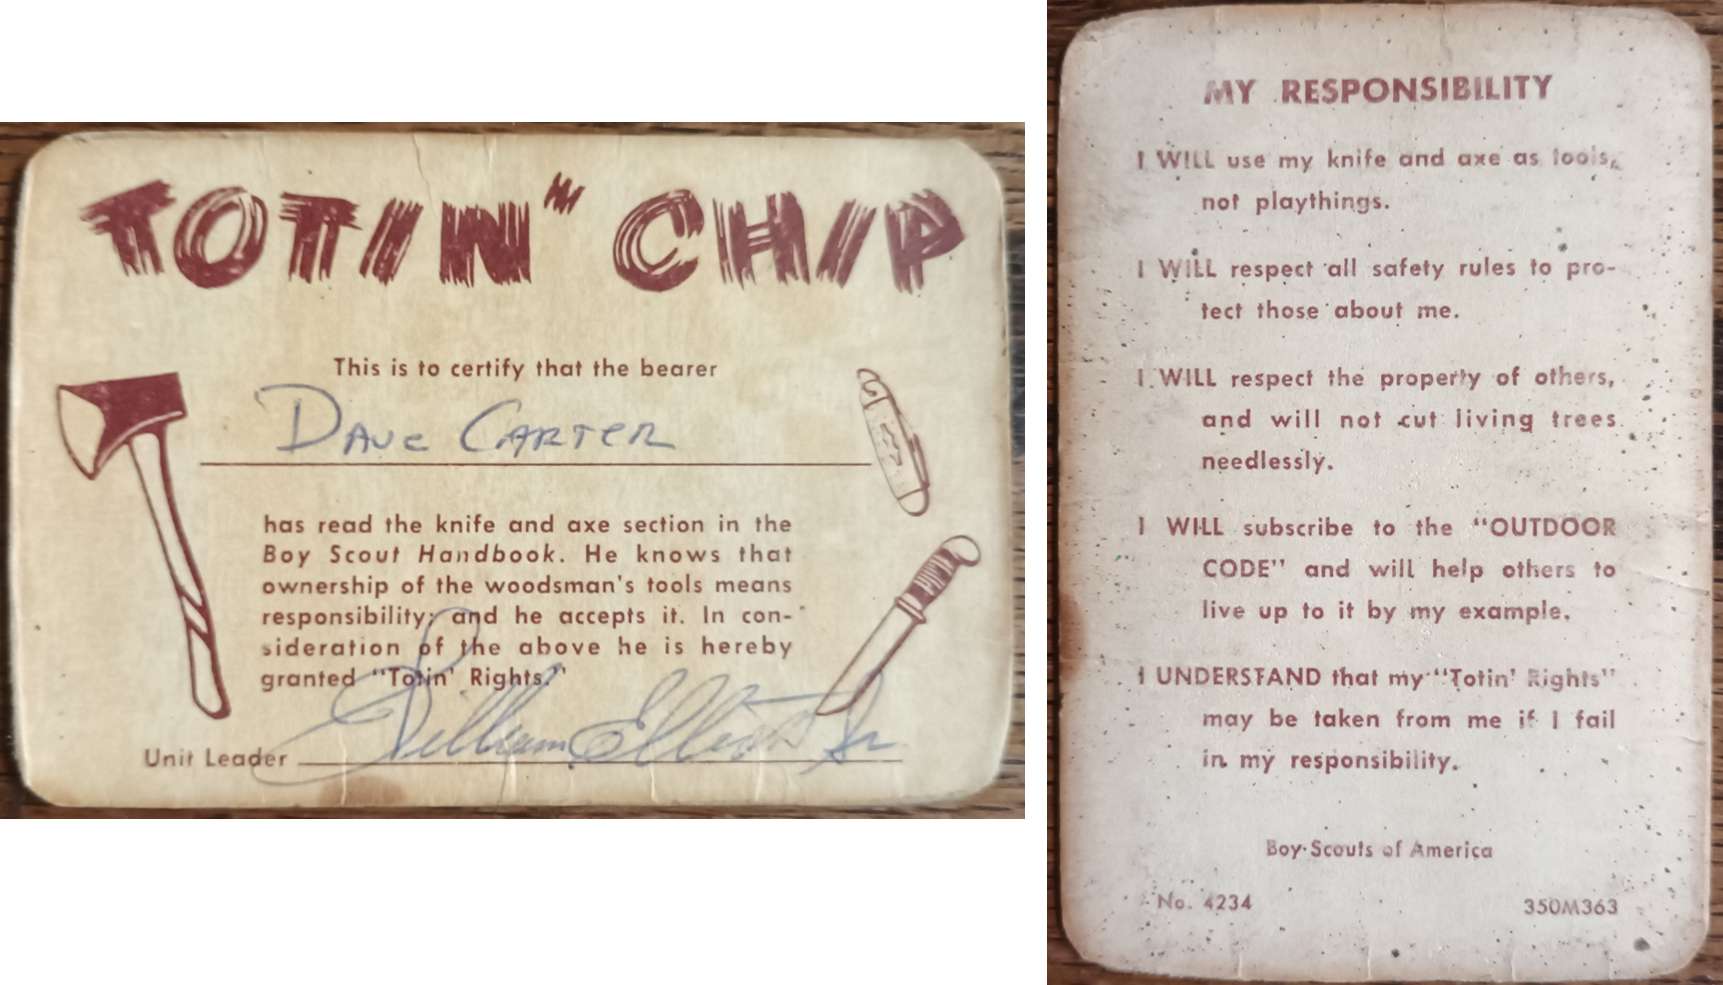 TOTIN' CHIP
This is to certify that the bearer
DAVE CARTER
has read the knife and axe section in the
Boy Scout Handbook. He knows that
ownership of the woodsman's tools means
responsibility; and he accepts it. In con-
sideration of the above he is hereby
granted "Totin' Rights."
Unit Leader William Elliott Sr
MY RESPONSIBILITY
I WILL use my knife and axe as tools,
not playthings.
I WILL respect all safety rules to pro-
tect those about me.
I WILL respect the property of others,
and will not cut living trees
needlessly.
I WILL subscribe to the "OUTDOOR
CODE" and will help others to
live up to it by my example.
I UNDERSTAND that my "Totin' Rights"
may be taken from me if I fail
in my responsibility.
Boy Scouts of America
No. 4234 350M363